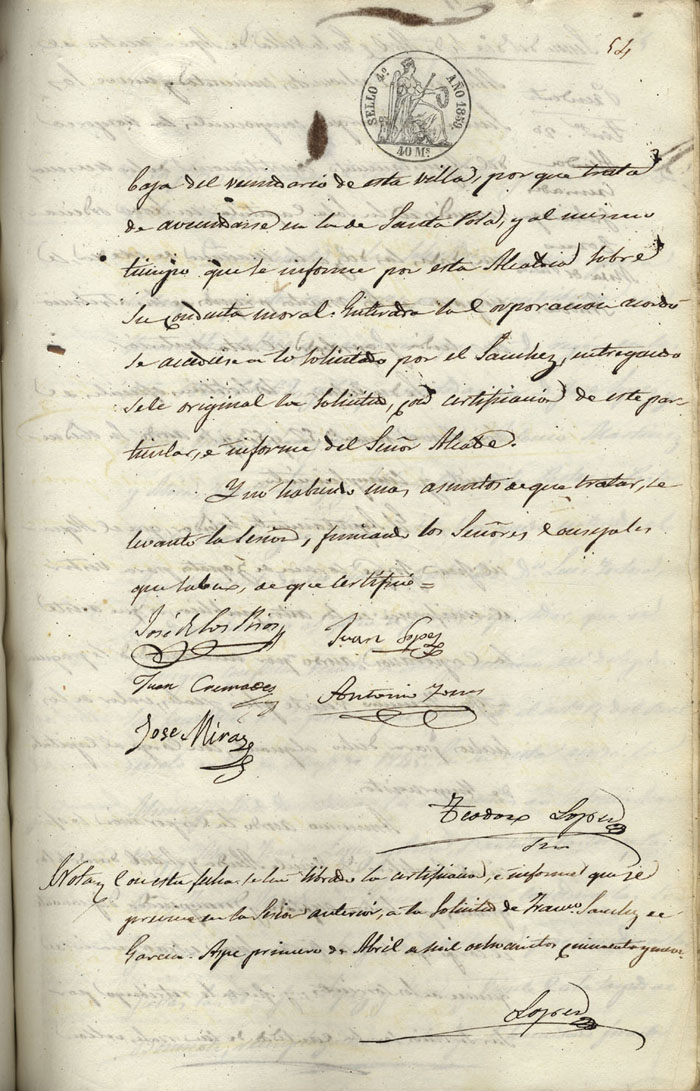 54
SELLO 4º AÑO 1859.
40 Ms
baja del vecindario de esta villa, por que trata
de avecindarse en la de Santa Pola, y al mismo
tiempo que se informe por esta Alcaldia sobre
su conducta moral. Enterada la Corporacion acordó
se accediese a lo solicitado por el Sanchez, entregando
sele original la solicitud, con certificacion de este par-
ticular, e informe del Señor Alcalde.
Y no habiendo mas asuntos de que tratar, se
levantó la Sesion, firmando los Señores Concejales
que saben, de que certifico =
José de los Rios
Juan Lopez
Juan Cremades
Antonio
Jose Mira
Teodoro Lopez
Srio
Nota, Con esta fecha se ha librado la certificacion, e informe que se
previene en la Sesion anterior, a la solicitud de Franco. Sanchez de
Garcia. Aspe primero de Abril de mil ochocientos cincuenta y nueve.
Lopez